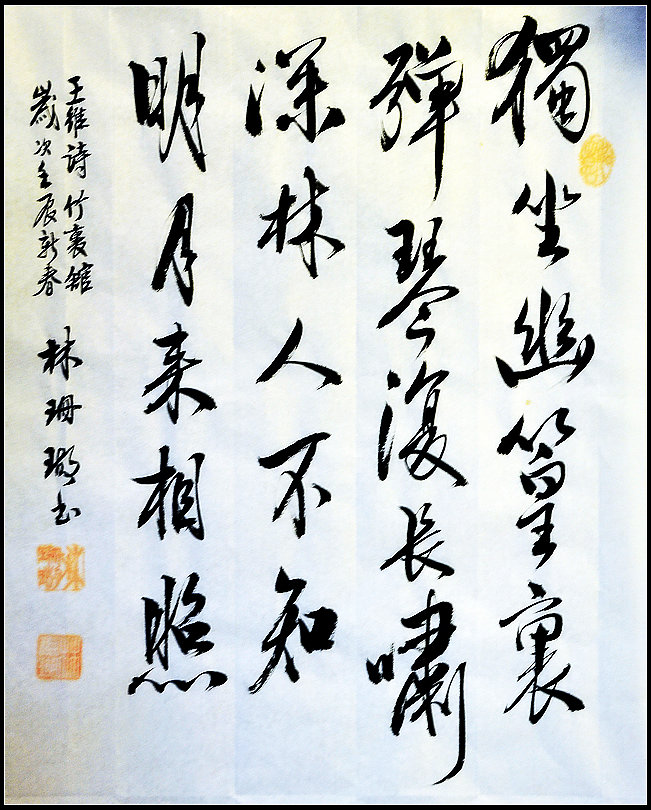 獨坐幽篁裏
彈琴復長嘯
深林人不知
明月来相照
王維詩竹裏館
歲次壬辰新春
林珊瑚书